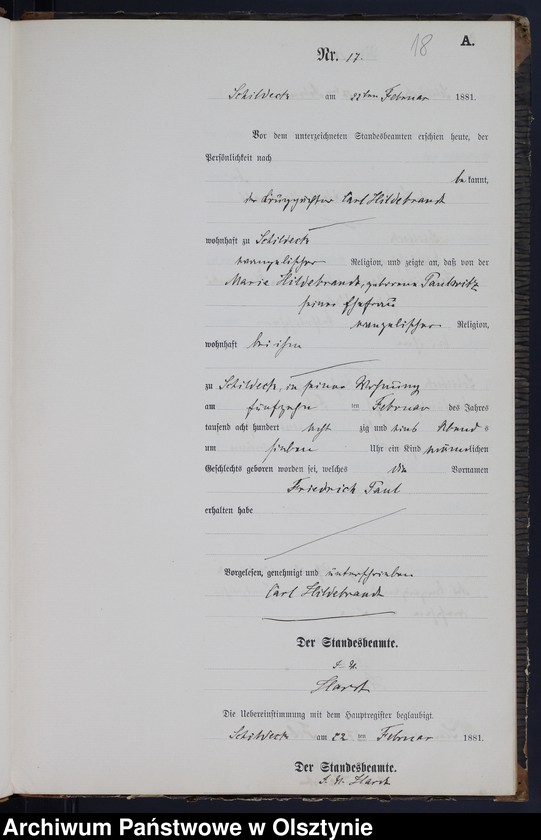 18
A.
Nr. 17.
Schildeck am 22ten Februar 1881.
Vor dem unterzeichneten Standesbeamten erschien heute, der
Persönlichkeit nach
be kannt,
der Krugpächter Carl Hildebrandt
wohnhaft zu Schildeck
evangelischer Religion, und zeigte an, daß von der
Marie Hildebrandt, geborene
seiner Ehefrau
evangelischer Religion,
wohnhaft bei ihm
zu Schildeck, in seiner Wohnung
am fünfzehn ten Februar des Jahres
tausend acht hundert acht zig und eins Abend s
um sieben Uhr ein Kind männlichen
Geschlechts geboren worden sei, welches die Vornamen
Friedrich Paul
erhalten habe
Vorgelesen, genehmigt und unterschrieben
Carl Hildebrandt
Der Standesbeamte.
Die Uebereinstimmung mit dem Hauptregister beglaubigt.
Schildeck am 22 ten Februar 1881.
Der Standesbeamte.
Archiwum Państwowe w Olsztynie